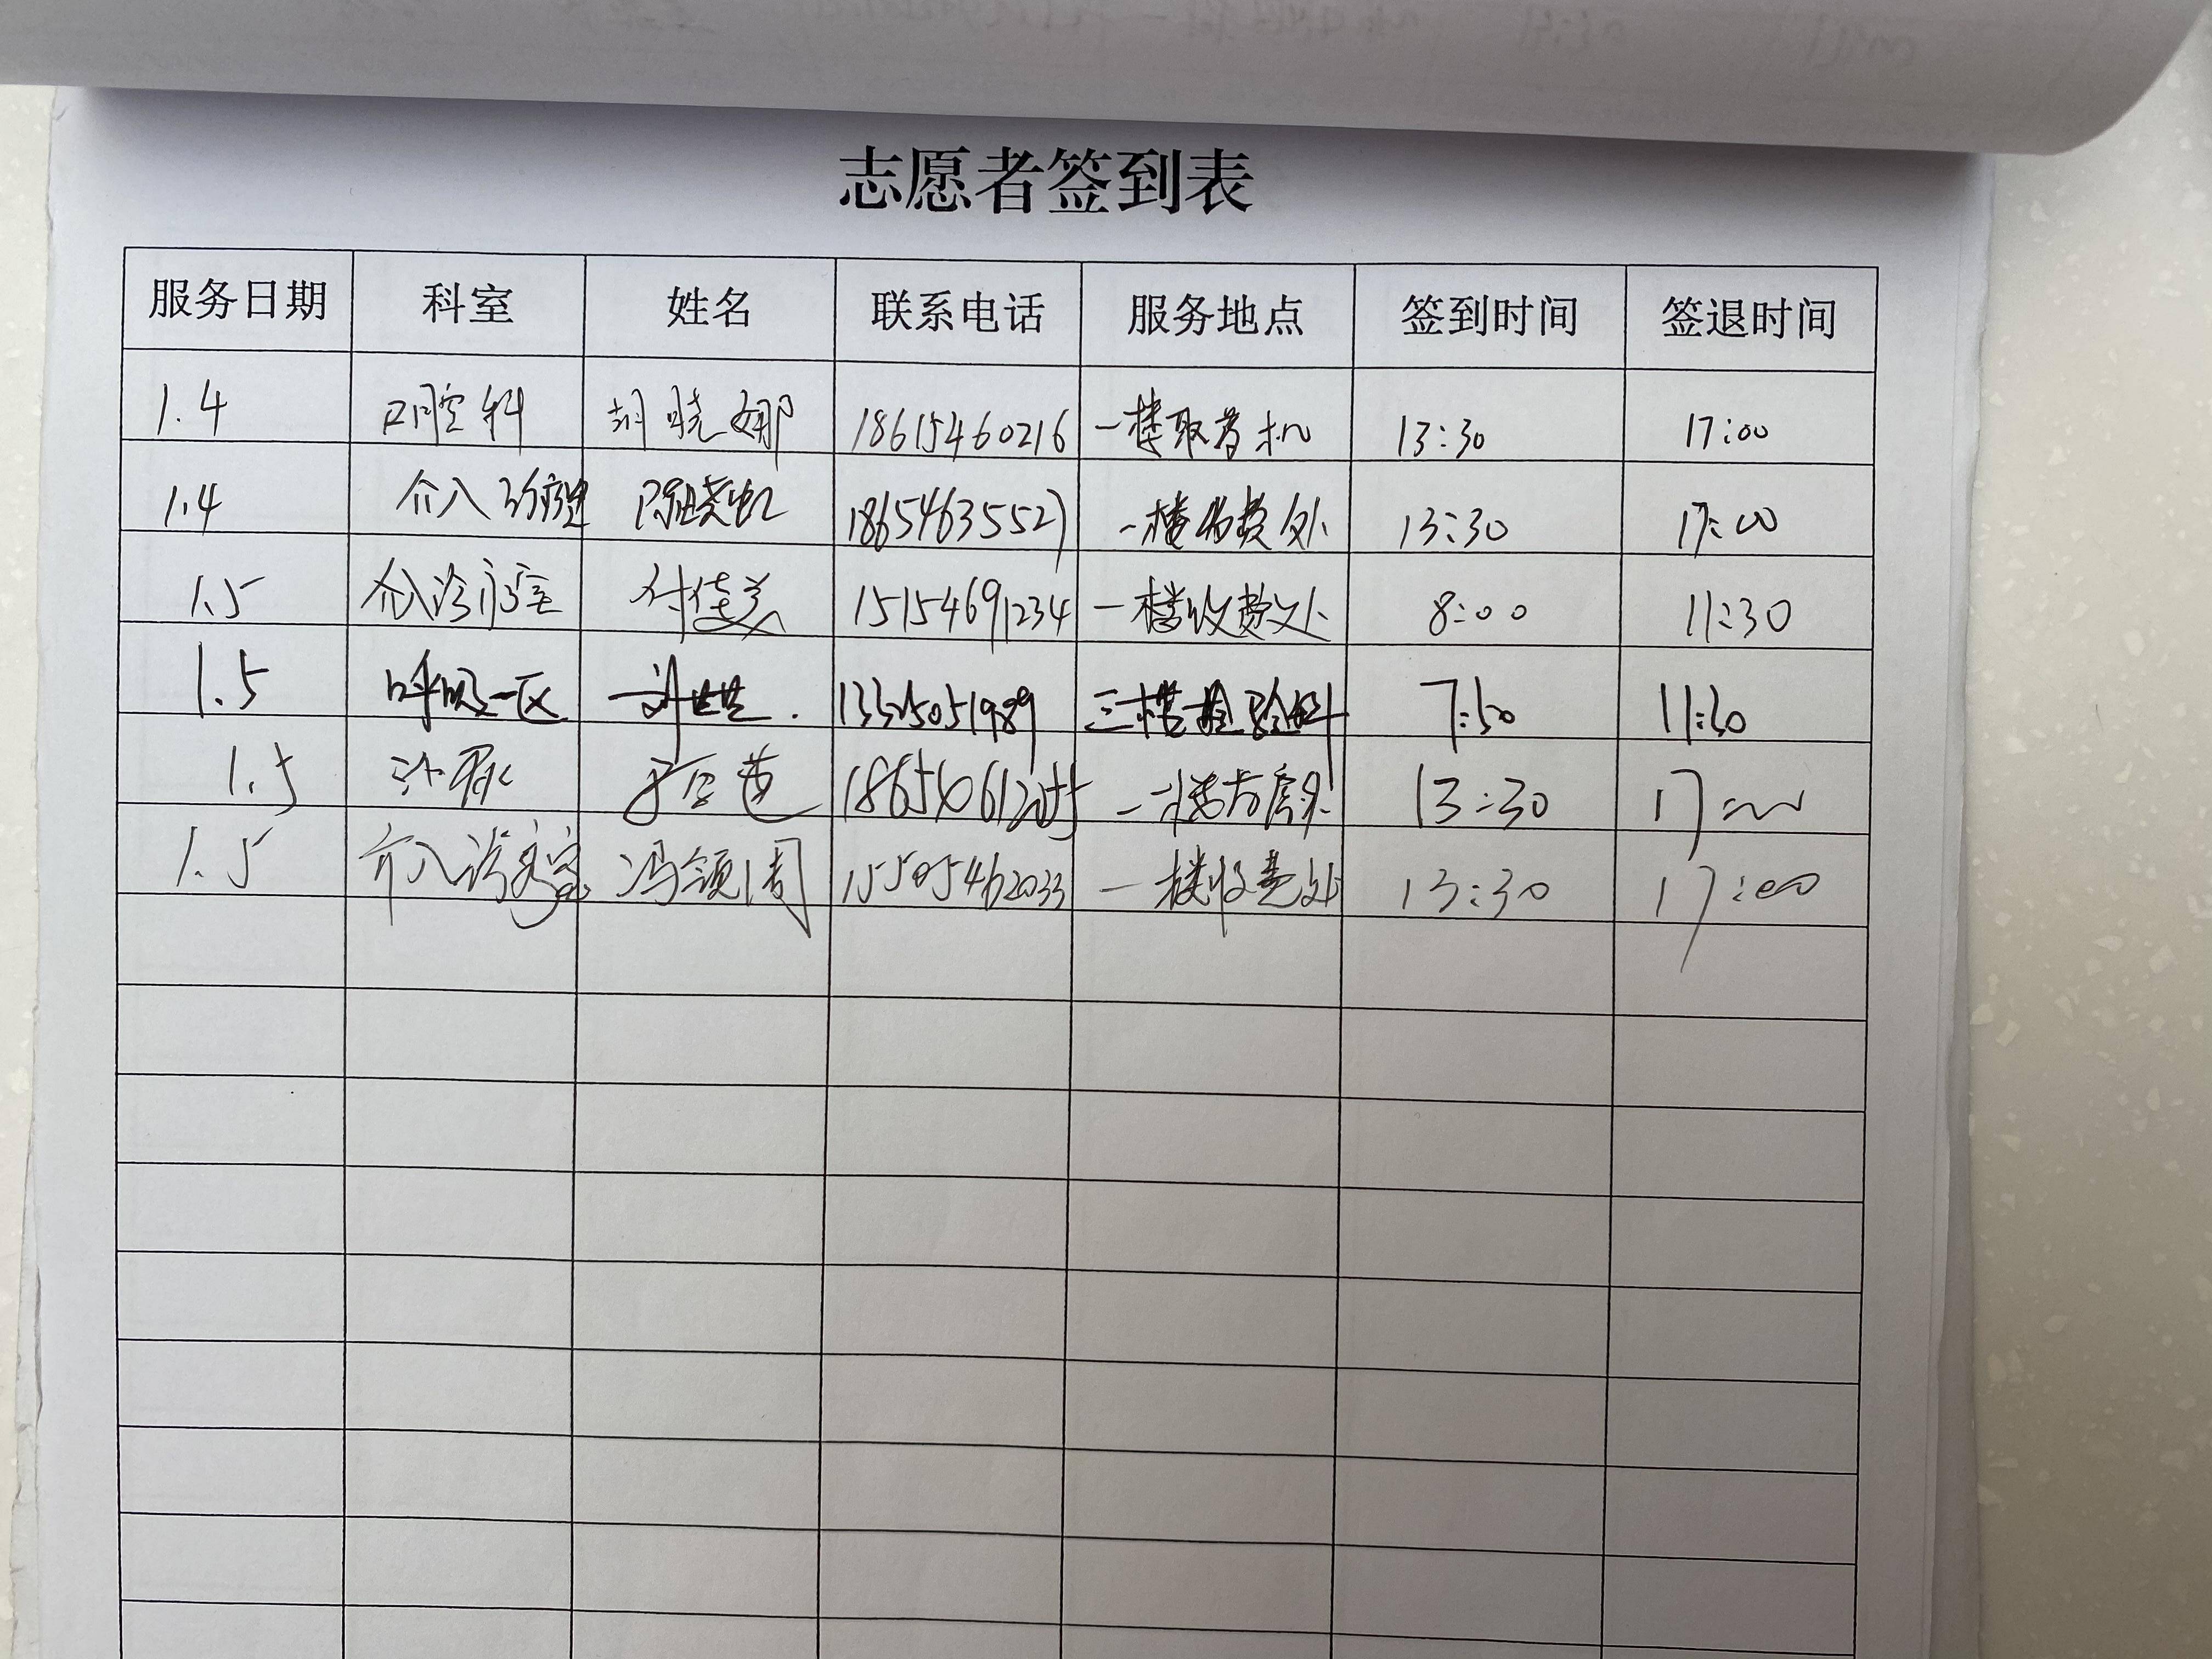 志愿者签到表
服务日期 科室 姓名 联系电话 服务地点 签到时间 签退时间
1.4 口腔科 胡晓娜 18615460216 一楼取号机 13:30 17:00
1.4 介入 18654635527 一楼收费处 13:30 17:00
1.5 介入诊疗室 付佳美 15154691234 一楼收费处 8:00 11:30
1.5 呼吸一区 三楼检验科 7:50 11:30
1.5 13:30 17:00
1.5 介入诊疗室 冯领周 15505462033 一楼收费处 13:30 17:00